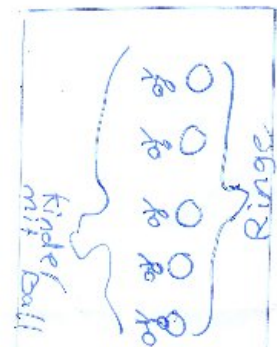 Ringe
Kinder
mit Ball